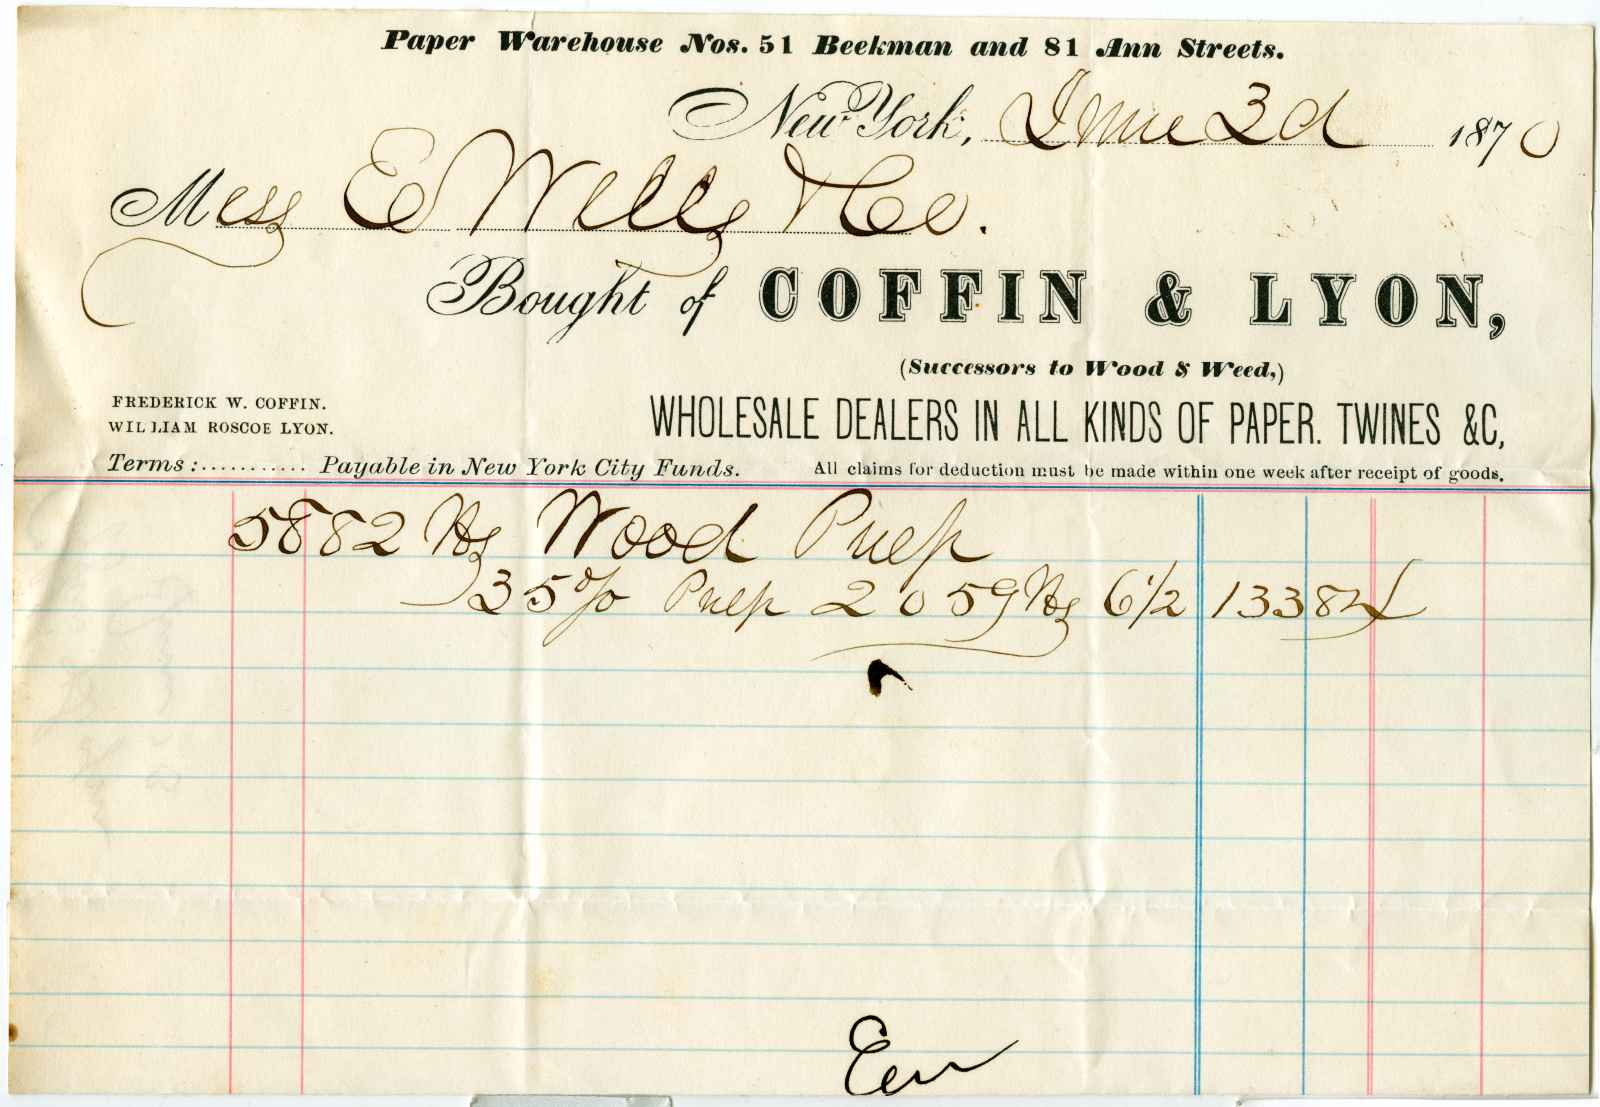 Paper Warehouse Nos. 51 Beekman and 81 Ann Streets.
New York, June 3d 1870
Mess E Wells & Co.
Bought of COFFIN & LYON,
(Successors to Wood & Weed,)
FREDERICK W. COFFIN.
WILLIAM ROSCOE LYON.
WHOLESALE DEALERS IN ALL KINDS OF PAPER. TWINES &C,
Terms :........... Payable in New York City Funds. All claims for deduction must be made within one week after receipt of goods.
5882 lbs Wood Pulp
35% Pulp 2059 lbs 6 1/2 13384